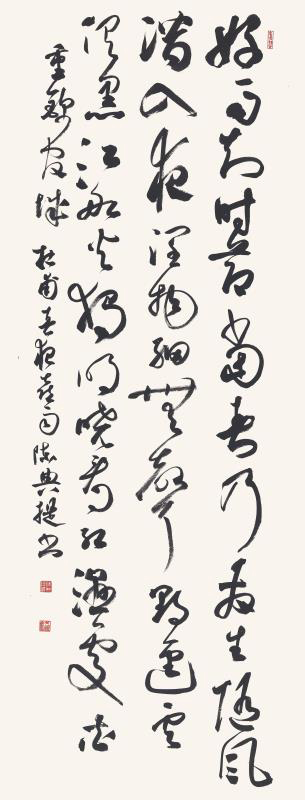 好雨知時節當春乃發生隨風
潛入夜潤物細無聲野徑雲
俱黑江船火獨明曉看紅濕處花
重錦官城 杜甫春夜喜雨 書